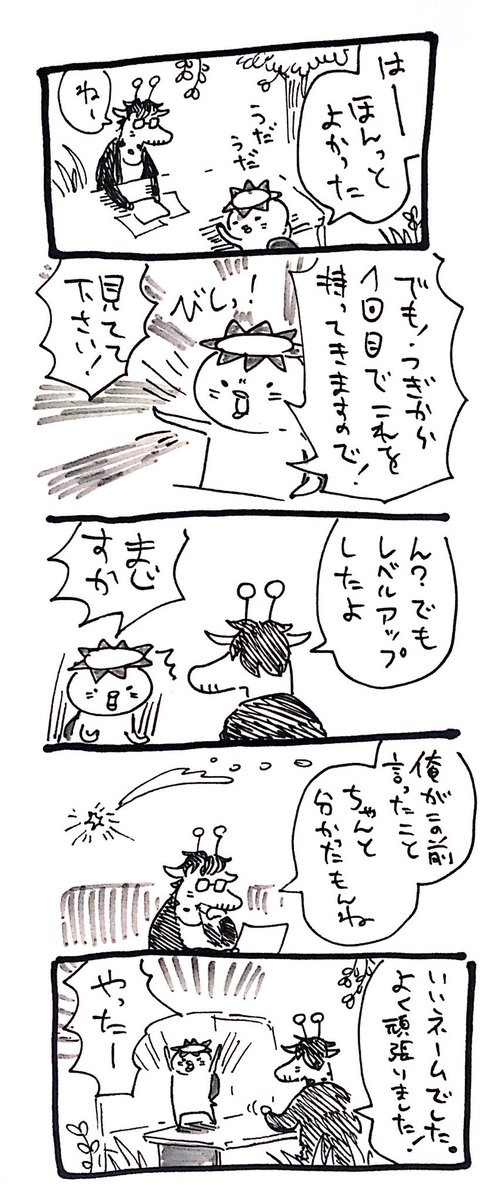 はー
ほんっと
よかった
うだ
うだ
ねー
でも！つぎから
1回目でこれを
持ってきますので！
びしっ！
見てて
下さい！
ん？でも
レベルアップ
したよ
まじ
すか
俺がこの前
言ったこと
ちゃんと
分かったもんね
いいネームでした。
よく頑張りました！
やったー